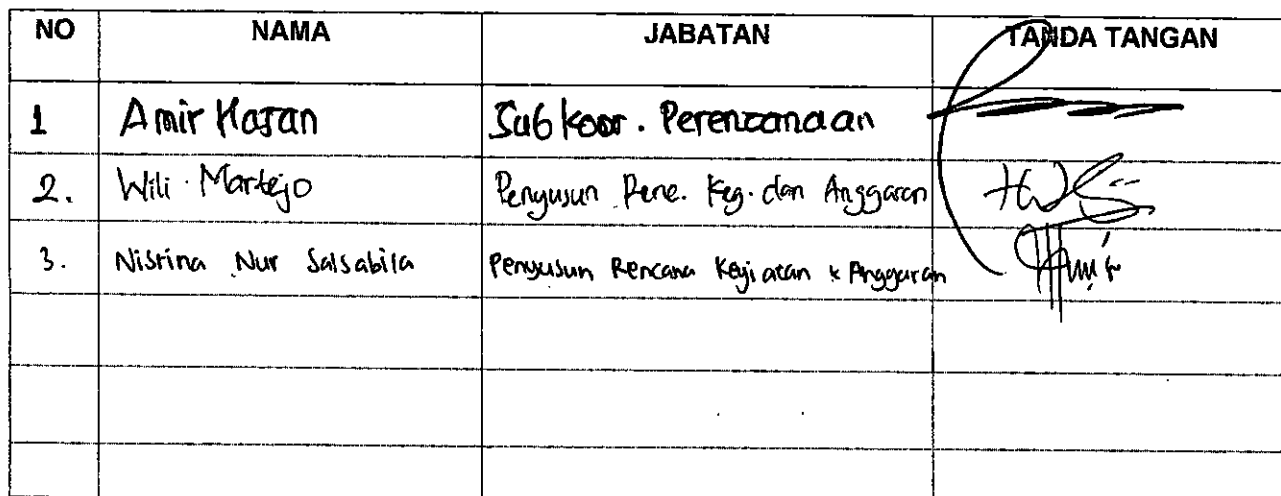 NO NAMA JABATAN TANDA TANGAN
1 Amir Hasan Subkoor. Perencanaan
2. Wili Martejo Penyusun Renc. Keg. dan Anggaran
3. Nisrina Nur Salsabila Penyusun Rencana Kegiatan & Anggaran